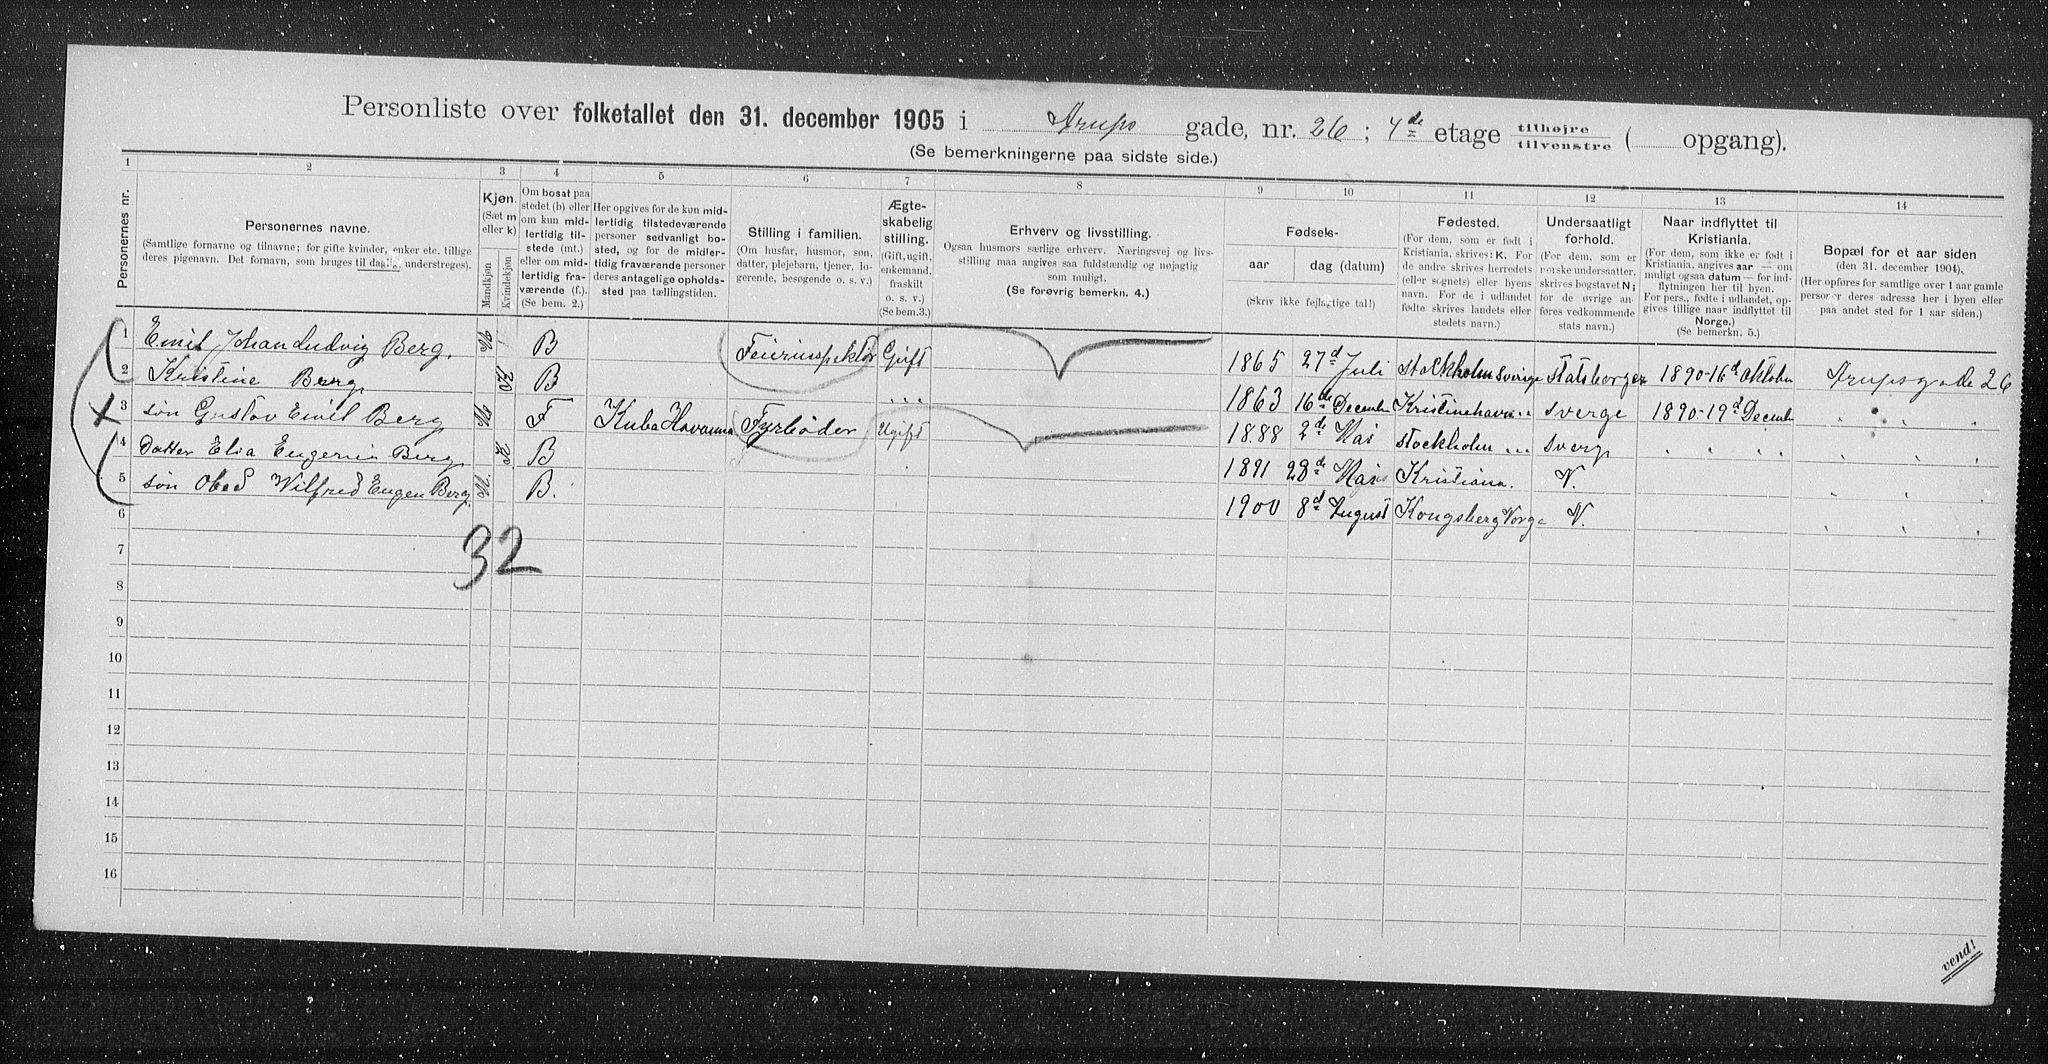 Personliste over folketallet den 31. december 1905 i Arups gade, nr. 26; 4de etage tilhøjre tilvenstre ( opgang).
(Se bemerkningerne paa sidste side.)
1 2 3 4 5 6 7 8 9 10 11 12 13 14
Personernes nr.
Personernes navne.
(Samtlige fornavne og tilnavne; for gifte kvinder, enker etc. tillige
deres pigenavn. Det fornavn, som bruges til daglig, understreges).
Kjøn.
(Sæt m
eller k)
Mandkjøn
Kvindekjøn
Om bosat paa
stedet (b) eller
om kun mid-
lertidig til-
stede (mt.)
eller om mid-
lertidig fra-
værende (f.).
(Se bem. 2.)
Her opgives for de kun mid-
lertidig tilstedeværende
personer sedvanligt bo-
sted, og for de midler-
tidig fraværende personer
deres antagelige opholds-
sted paa tællingstiden.
Stilling i familien.
(Om husfar, husmor, søn,
datter, plejebarn, tjener, lo-
gerende, besøgende o. s. v.)
Ægte-
skabelig
stilling.
(Gift, ugift,
enkemand,
fraskilt
o. s. v.)
(Se bem.3.)
Erhverv og livsstilling.
Ogsaa husmors særlige erhverv. Næringsvej og livs-
stilling maa angives saa fuldstændig og nøjagtig
som muligt.
(Se forøvrig bemerkn. 4.)
Fødsels-
aar dag (datum)
(Skriv ikke fejlagtige tal!)
Fødested.
(For dem, som er født i
Kristiania, skrives: K. For
de andre skrives herredets
(eller sognets) eller byens
navn. For de i udlandet
fødte skrives landets eller
stedets navn.)
Undersaatligt
forhold.
(For dem, som er
norske undersaatter,
skrives bogstavet N;
for de øvrige an-
føres vedkommende
stats navn.)
Naar indflyttet til
Kristiania.
(For dem, som ikke er født i
Kristiania, angives aar — om
muligt ogsaa datum — for ind-
flytningen her til byen.
For pers., fødte i udlandet, op-
gives tillige naar indflyttet til
Norge.)
(Se bemerkn. 5.)
Bopæl for et aar siden
(den 31. december 1904).
(Her opføres for samtlige over 1 aar gamle
personer deres adresse her i byen eller
paa andet sted for 1 aar siden.)
1 Emil Johan Ludvig Berg. M B Feierinspektør Gift 1865 27d Juli Stockholm Sverige statsborger 1890-16d Oktober Arupsgade 26
2 Kristine Berg K B 1863 16de December Kristinehavn Sverge 1890-19d December
3 søn Gustav Emil Berg M F Kuba Havanna Fyrbøder Ugift 1888 2de Mai Stockholm Sverge
4 Datter Elsa Eugenia Berg K B 1891 28de Kristiana. N.
5 søn Obed Wilfred Eugen Berg. M B. 1900 8d August Kongsberg Norge N.
6
32
7
8
9
10
11
12
13
14
15
16
vend!